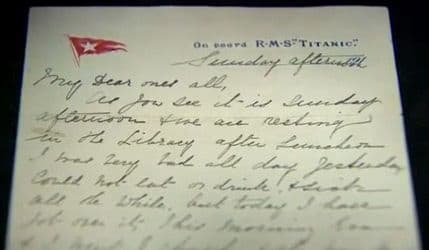 On board R·M·S "TITANIC".
Sunday afternoon
My Dear ones all,
As you see it is Sunday
afternoon & we are resting
in the Library after Luncheon
I was very bad all day Yesterday
Could not eat or drink, & sick
all the while, but today I have
got over it, This morning Eva
& I went